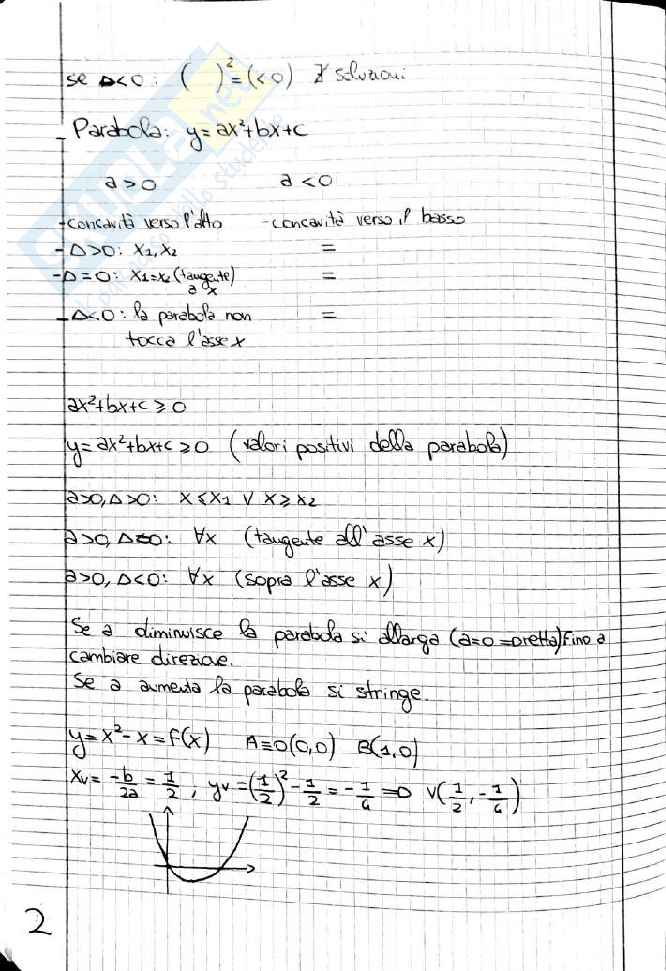 se Δ<0: (   )²=(<0) ∄ soluzioni
- Parabola: y=ax²+bx+c
a>0   a<0
-concavità verso l'alto   -concavità verso il basso
-Δ>0: x₁,x₂   =
-Δ=0: x₁=x₂ (tangente)   =
a x
-Δ<0: la parabola non   =
tocca l'asse x
ax²+bx+c⩾0
y=ax²+bx+c⩾0 (valori positivi della parabola)
a>0,Δ>0: x⩽x₁ ∨ x⩾x₂
a>0,Δ=0: ∀x (tangente all'asse x)
a>0,Δ<0: ∀x (sopra l'asse x)
Se a diminuisce la parabola si allarga (a=0 =retta) Fino a
cambiare direzione.
Se a aumenta la parabola si stringe.
y=x²-x=f(x)   A≡O(0,0)   B(1,0)
xv=-b/2a=1/2, yv=(1/2)²-1/2=-1/4 ⇒ V(1/2,-1/4)
2